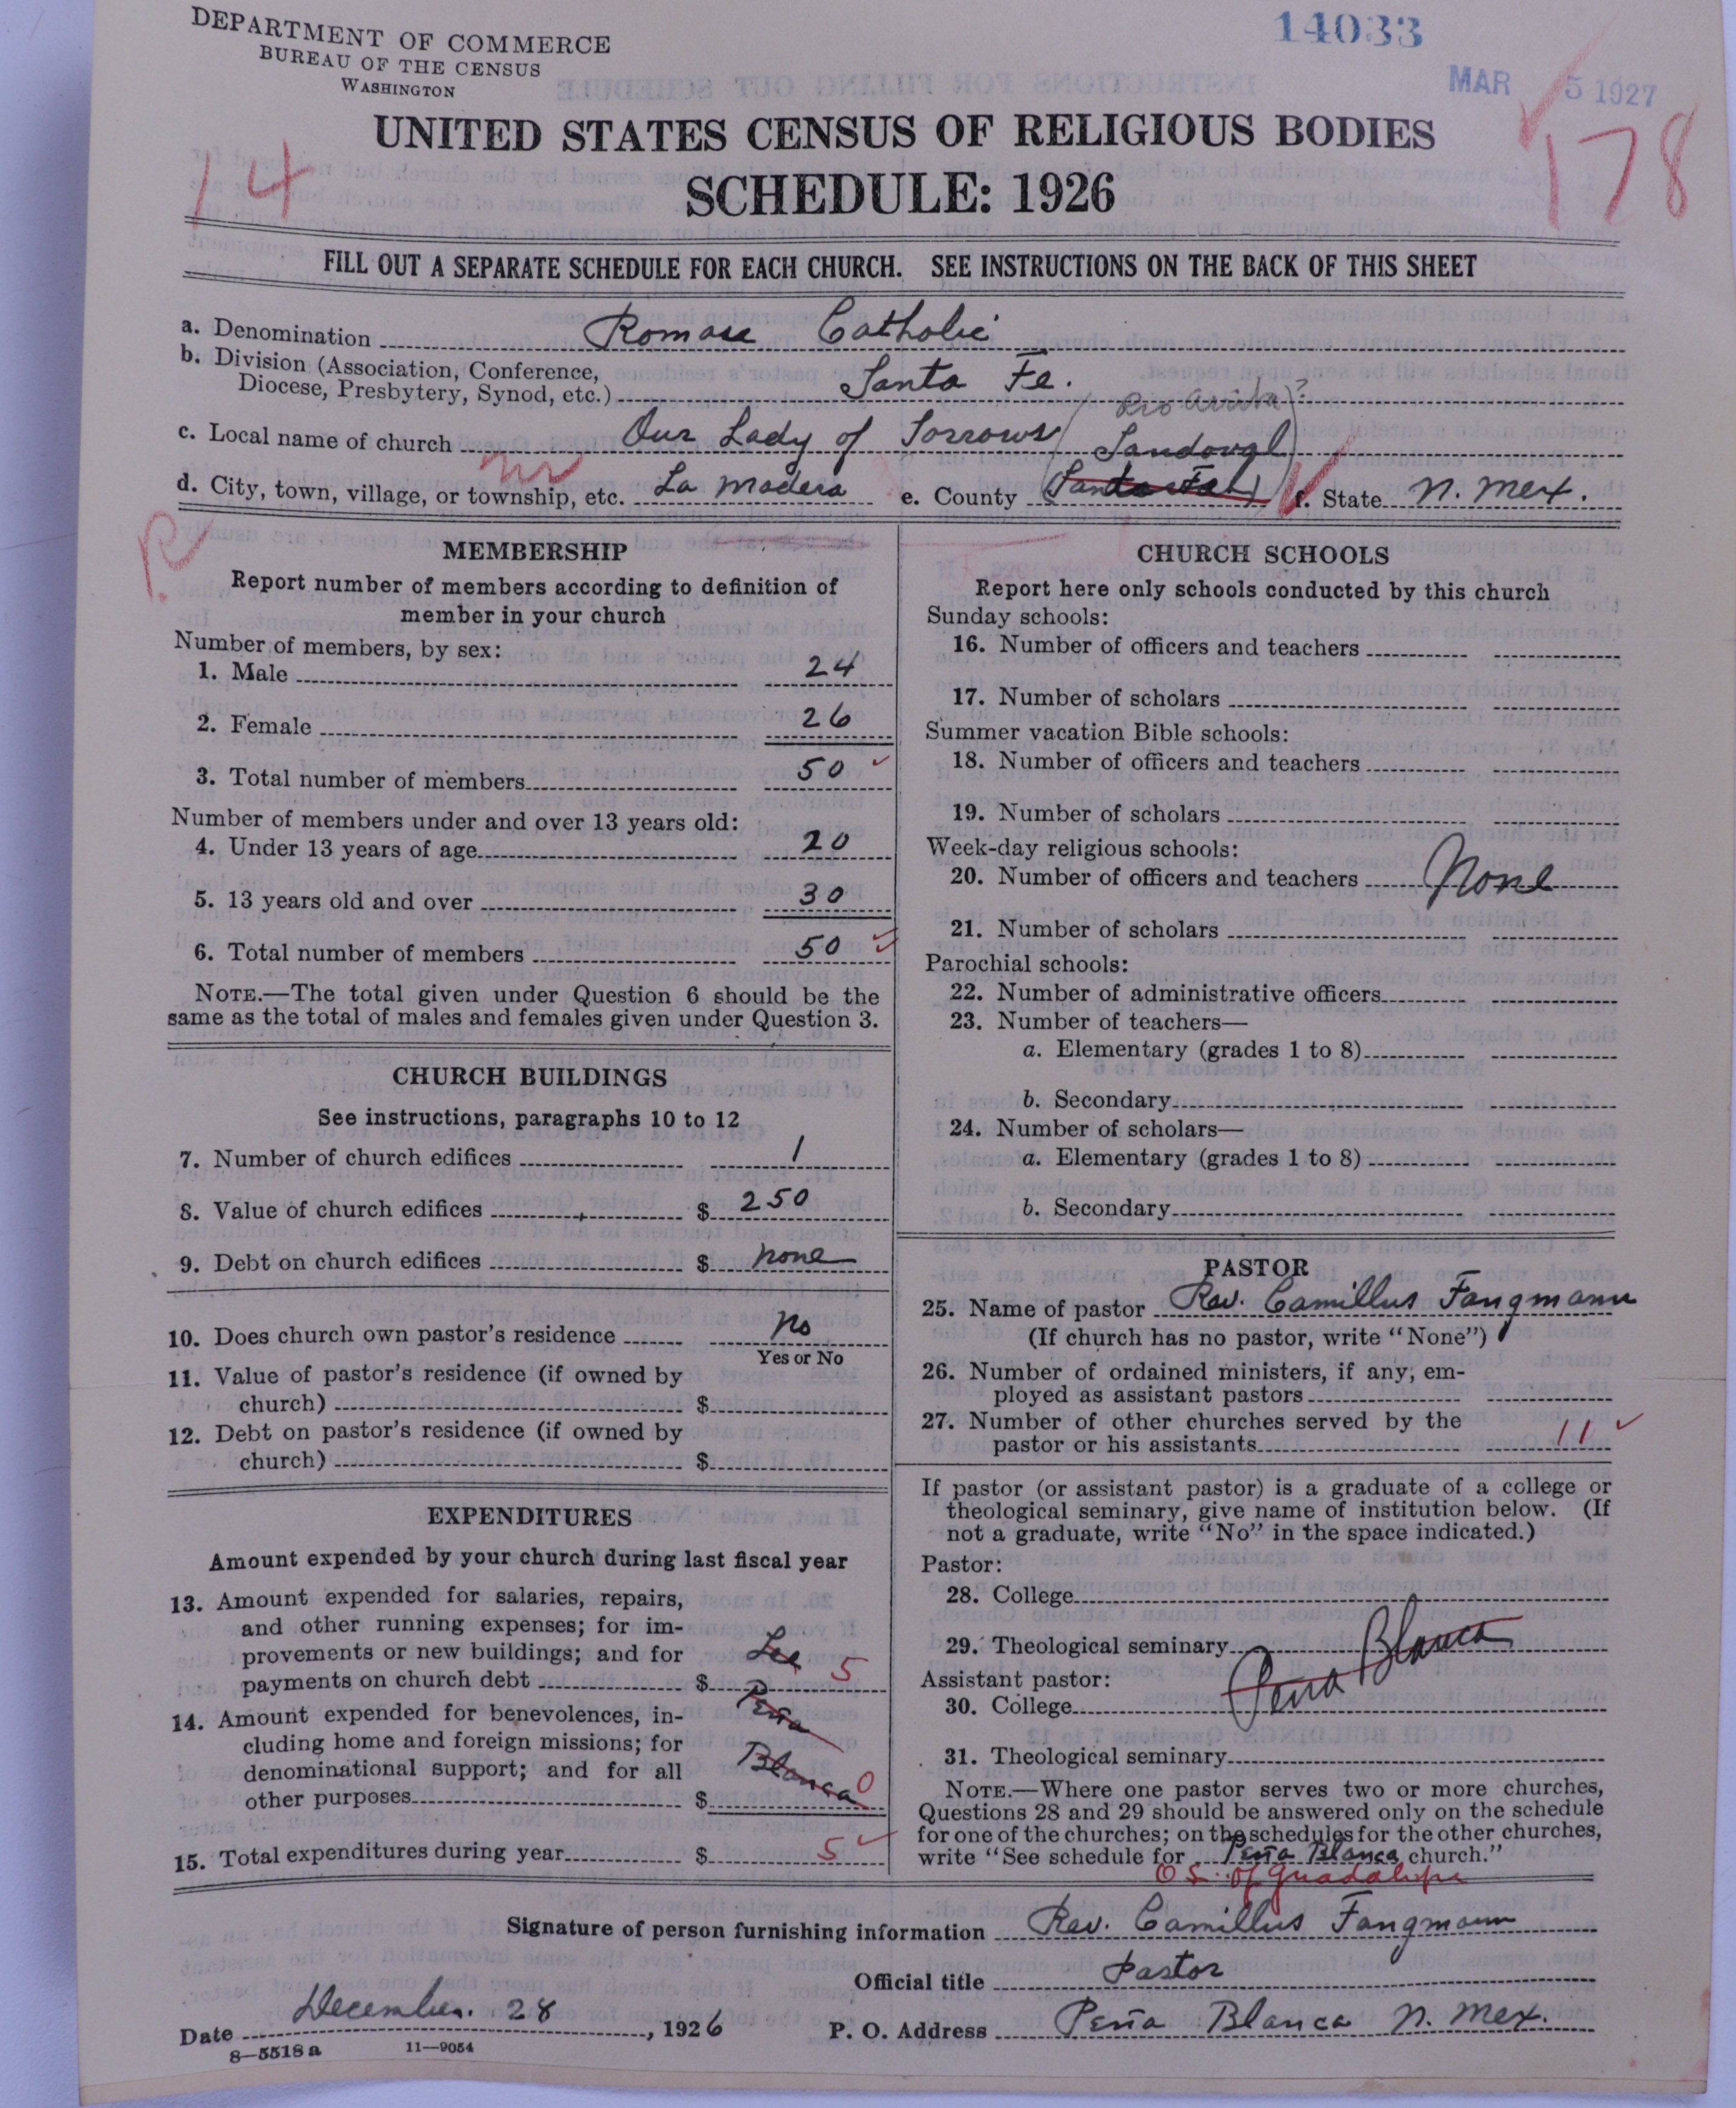 DEPARTMENT OF COMMERCE
BUREAU OF THE CENSUS
WASHINGTON
14033
MAR 5 1927
UNITED STATES CENSUS OF RELIGIOUS BODIES
SCHEDULE: 1926
14
178
FILL OUT A SEPARATE SCHEDULE FOR EACH CHURCH. SEE INSTRUCTIONS ON THE BACK OF THIS SHEET
a. Denomination Roman Catholic
b. Division (Association, Conference,
Diocese, Presbytery, Synod, etc.) Santa Fe.
Rio Arriba?
c. Local name of church Our Lady of Sorrows
Sandoval
d. City, town, village, or township, etc. La Madera e. County Santa Fe f. State N. Mex.
R.
MEMBERSHIP
Report number of members according to definition of
member in your church
Number of members, by sex:
1. Male 24
2. Female 26
3. Total number of members 50
Number of members under and over 13 years old:
4. Under 13 years of age 20
5. 13 years old and over 30
6. Total number of members 50
NOTE.—The total given under Question 6 should be the
same as the total of males and females given under Question 3.
CHURCH BUILDINGS
See instructions, paragraphs 10 to 12
7. Number of church edifices 1
8. Value of church edifices $ 250
9. Debt on church edifices $ none
10. Does church own pastor's residence No
Yes or No
11. Value of pastor's residence (if owned by
church) $
12. Debt on pastor's residence (if owned by
church) $
EXPENDITURES
Amount expended by your church during last fiscal year
13. Amount expended for salaries, repairs,
and other running expenses; for im-
provements or new buildings; and for
payments on church debt $ See 5
14. Amount expended for benevolences, in- Peña
cluding home and foreign missions; for
denominational support; and for all Blanca
other purposes $ 0
15. Total expenditures during year $ 5
CHURCH SCHOOLS
Report here only schools conducted by this church
Sunday schools:
16. Number of officers and teachers
17. Number of scholars
Summer vacation Bible schools:
18. Number of officers and teachers
19. Number of scholars
Week-day religious schools:
20. Number of officers and teachers None
21. Number of scholars
Parochial schools:
22. Number of administrative officers
23. Number of teachers—
a. Elementary (grades 1 to 8)
b. Secondary
24. Number of scholars—
a. Elementary (grades 1 to 8)
b. Secondary
PASTOR
25. Name of pastor Rev. Camillus Fangmann
(If church has no pastor, write "None")
26. Number of ordained ministers, if any, em-
ployed as assistant pastors
27. Number of other churches served by the
pastor or his assistants 11
If pastor (or assistant pastor) is a graduate of a college or
theological seminary, give name of institution below. (If
not a graduate, write "No" in the space indicated.)
Pastor:
28. College
29. Theological seminary
Assistant pastor: Pena Blanca
30. College
31. Theological seminary
NOTE.—Where one pastor serves two or more churches,
Questions 28 and 29 should be answered only on the schedule
for one of the churches; on the schedules for the other churches,
write "See schedule for Peña Blanca church."
O. L. of Guadalupe
Signature of person furnishing information Rev. Camillus Fangmann
Official title Pastor
Date December. 28, 1926 P. O. Address Peña Blanca N. Mex.
8—5518 a 11—9054